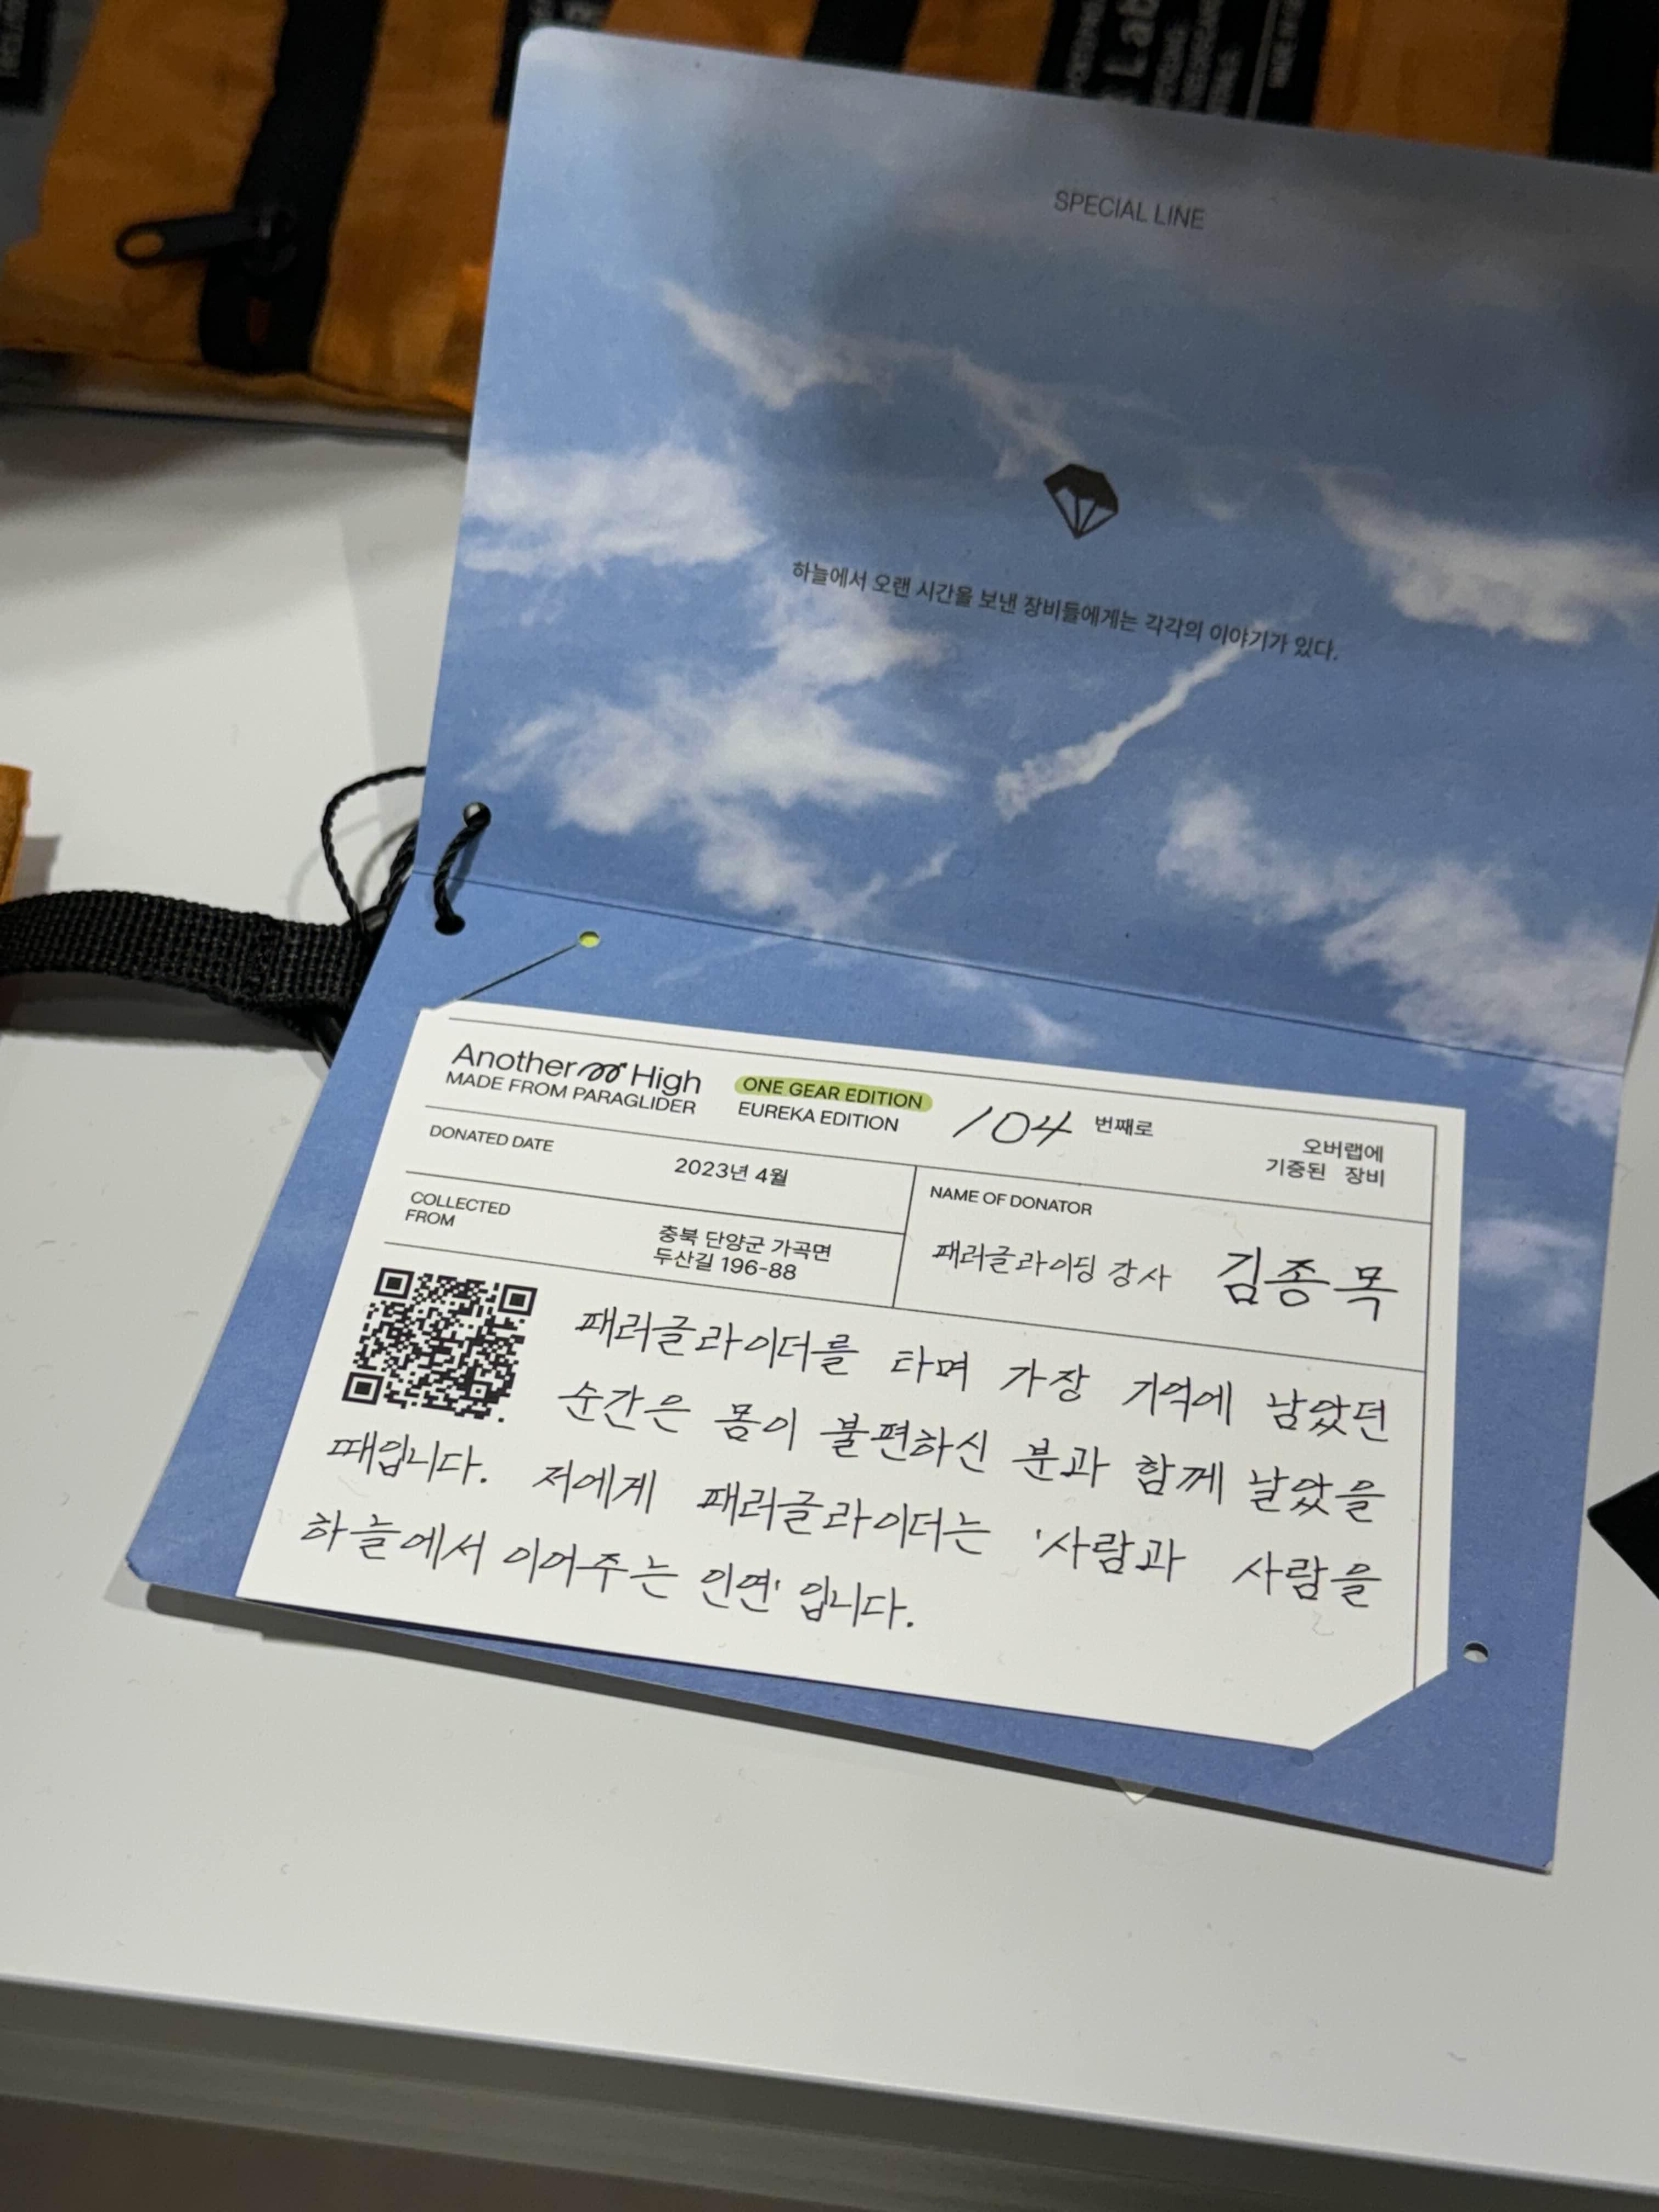 Lab
SPECIAL LINE
하늘에서 오랜 시간을 보낸 장비들에게는 각각의 이야기가 있다.
Another High
MADE FROM PARAGLIDER
ONE GEAR EDITION
EUREKA EDITION
104 번째로
오버랩에
기증된 장비
DONATED DATE
2023년 4월
COLLECTED
FROM
충북 단양군 가곡면
두산길 196-88
NAME OF DONATOR
패러글라이딩 강사 김종목
패러글라이더를 타며 가장 기억에 남았던
순간은 몸이 불편하신 분과 함께 날았을
때입니다. 저에게 패러글라이더는 '사람과 사람을
하늘에서 이어주는 인연' 입니다.